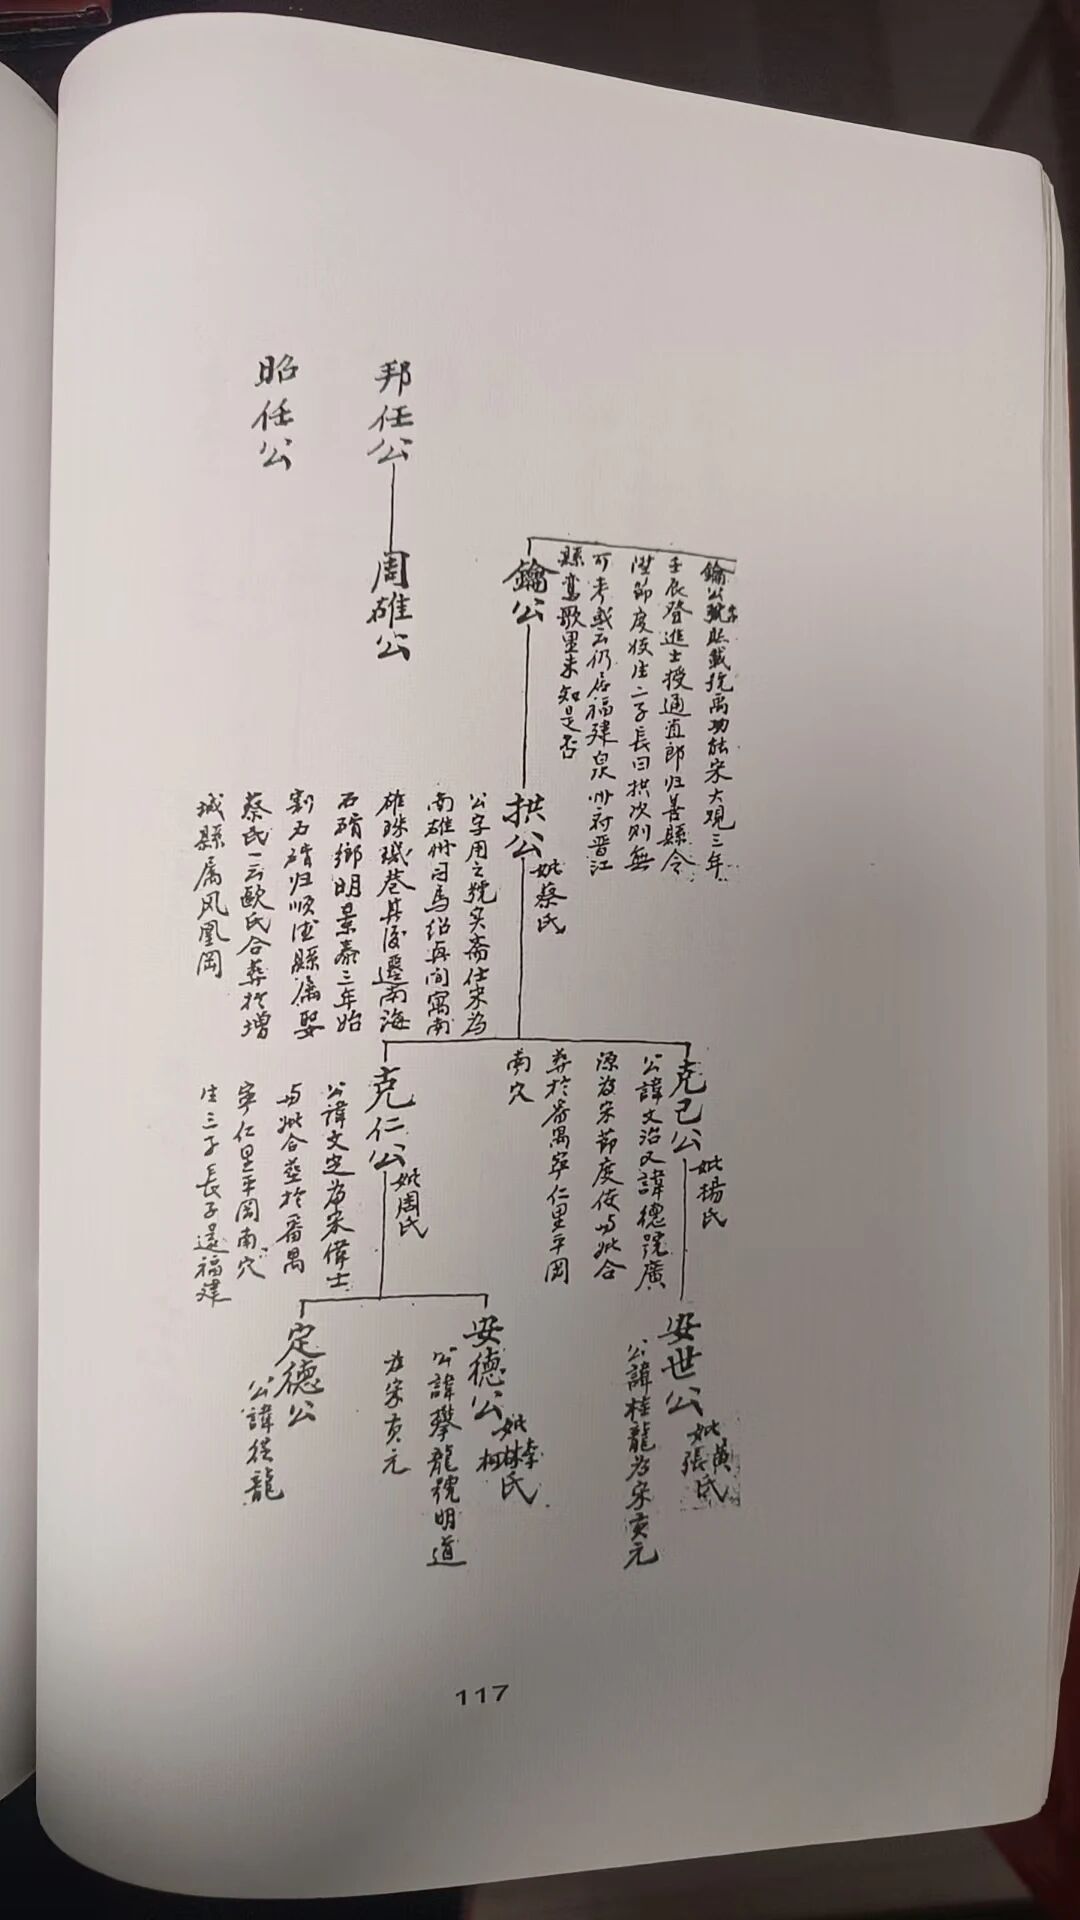 鑰公
鑰公號貺載抗禹功能宋大觀三年
壬辰登進士授通直郎归善縣令
陞節度使生二子長曰拱次则無
可考或云仍居福建泉州府晋江
縣鸞歌里未知是否
邦任公
周雄公
昭任公
拱公
妣蔡氏
公字用之號实斋仕宋為
南雄州司馬绍兴间寓南
雄珠璣巷其後遷南海
石碏鄉明景泰三年始
割石碏归順德縣属娶
蔡氏一云歐氏合葬於增
城縣属凤凰岡
克己公
妣楊氏
公諱文治又諱德號廣
源为宋節度使与妣合
葬於番禺寧仁里平岡
南穴
克仁公
妣周氏
公諱文定为宋偉士
与妣合葬於番禺
寧仁里平岡南穴
生三子長子還福建
安世公
妣黄張氏
公諱桂龍为宋貢元
安德公
妣李林柯氏
公諱攀龍號明道
为宋貢元
定德公
公諱從龍
117